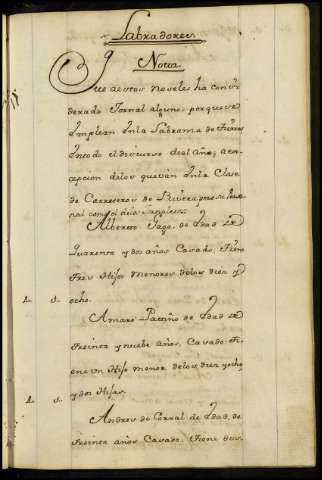 Labradores
Nota
Que a estos no seles ha consi
derado Jornal alguno; porque se
Emplean En la Labranza de tierras
En todo el discurso del Año, a ex
cepcion de los que ván En la Clase
de Carreteros de
Alberto Jago, de Edad de
Quarenta y dos años Casado, tiene
tres Hijos menores delos diez y
1. 3. ocho.
Amaro Patiño de Edad de
treinta y nuebe años, Casado. ti
ene un Hijo menor delos diez y ocho
y dos Hijas.
1. 1.
Andres de Corral de Edad, de
treinta años Casado. tiene dos